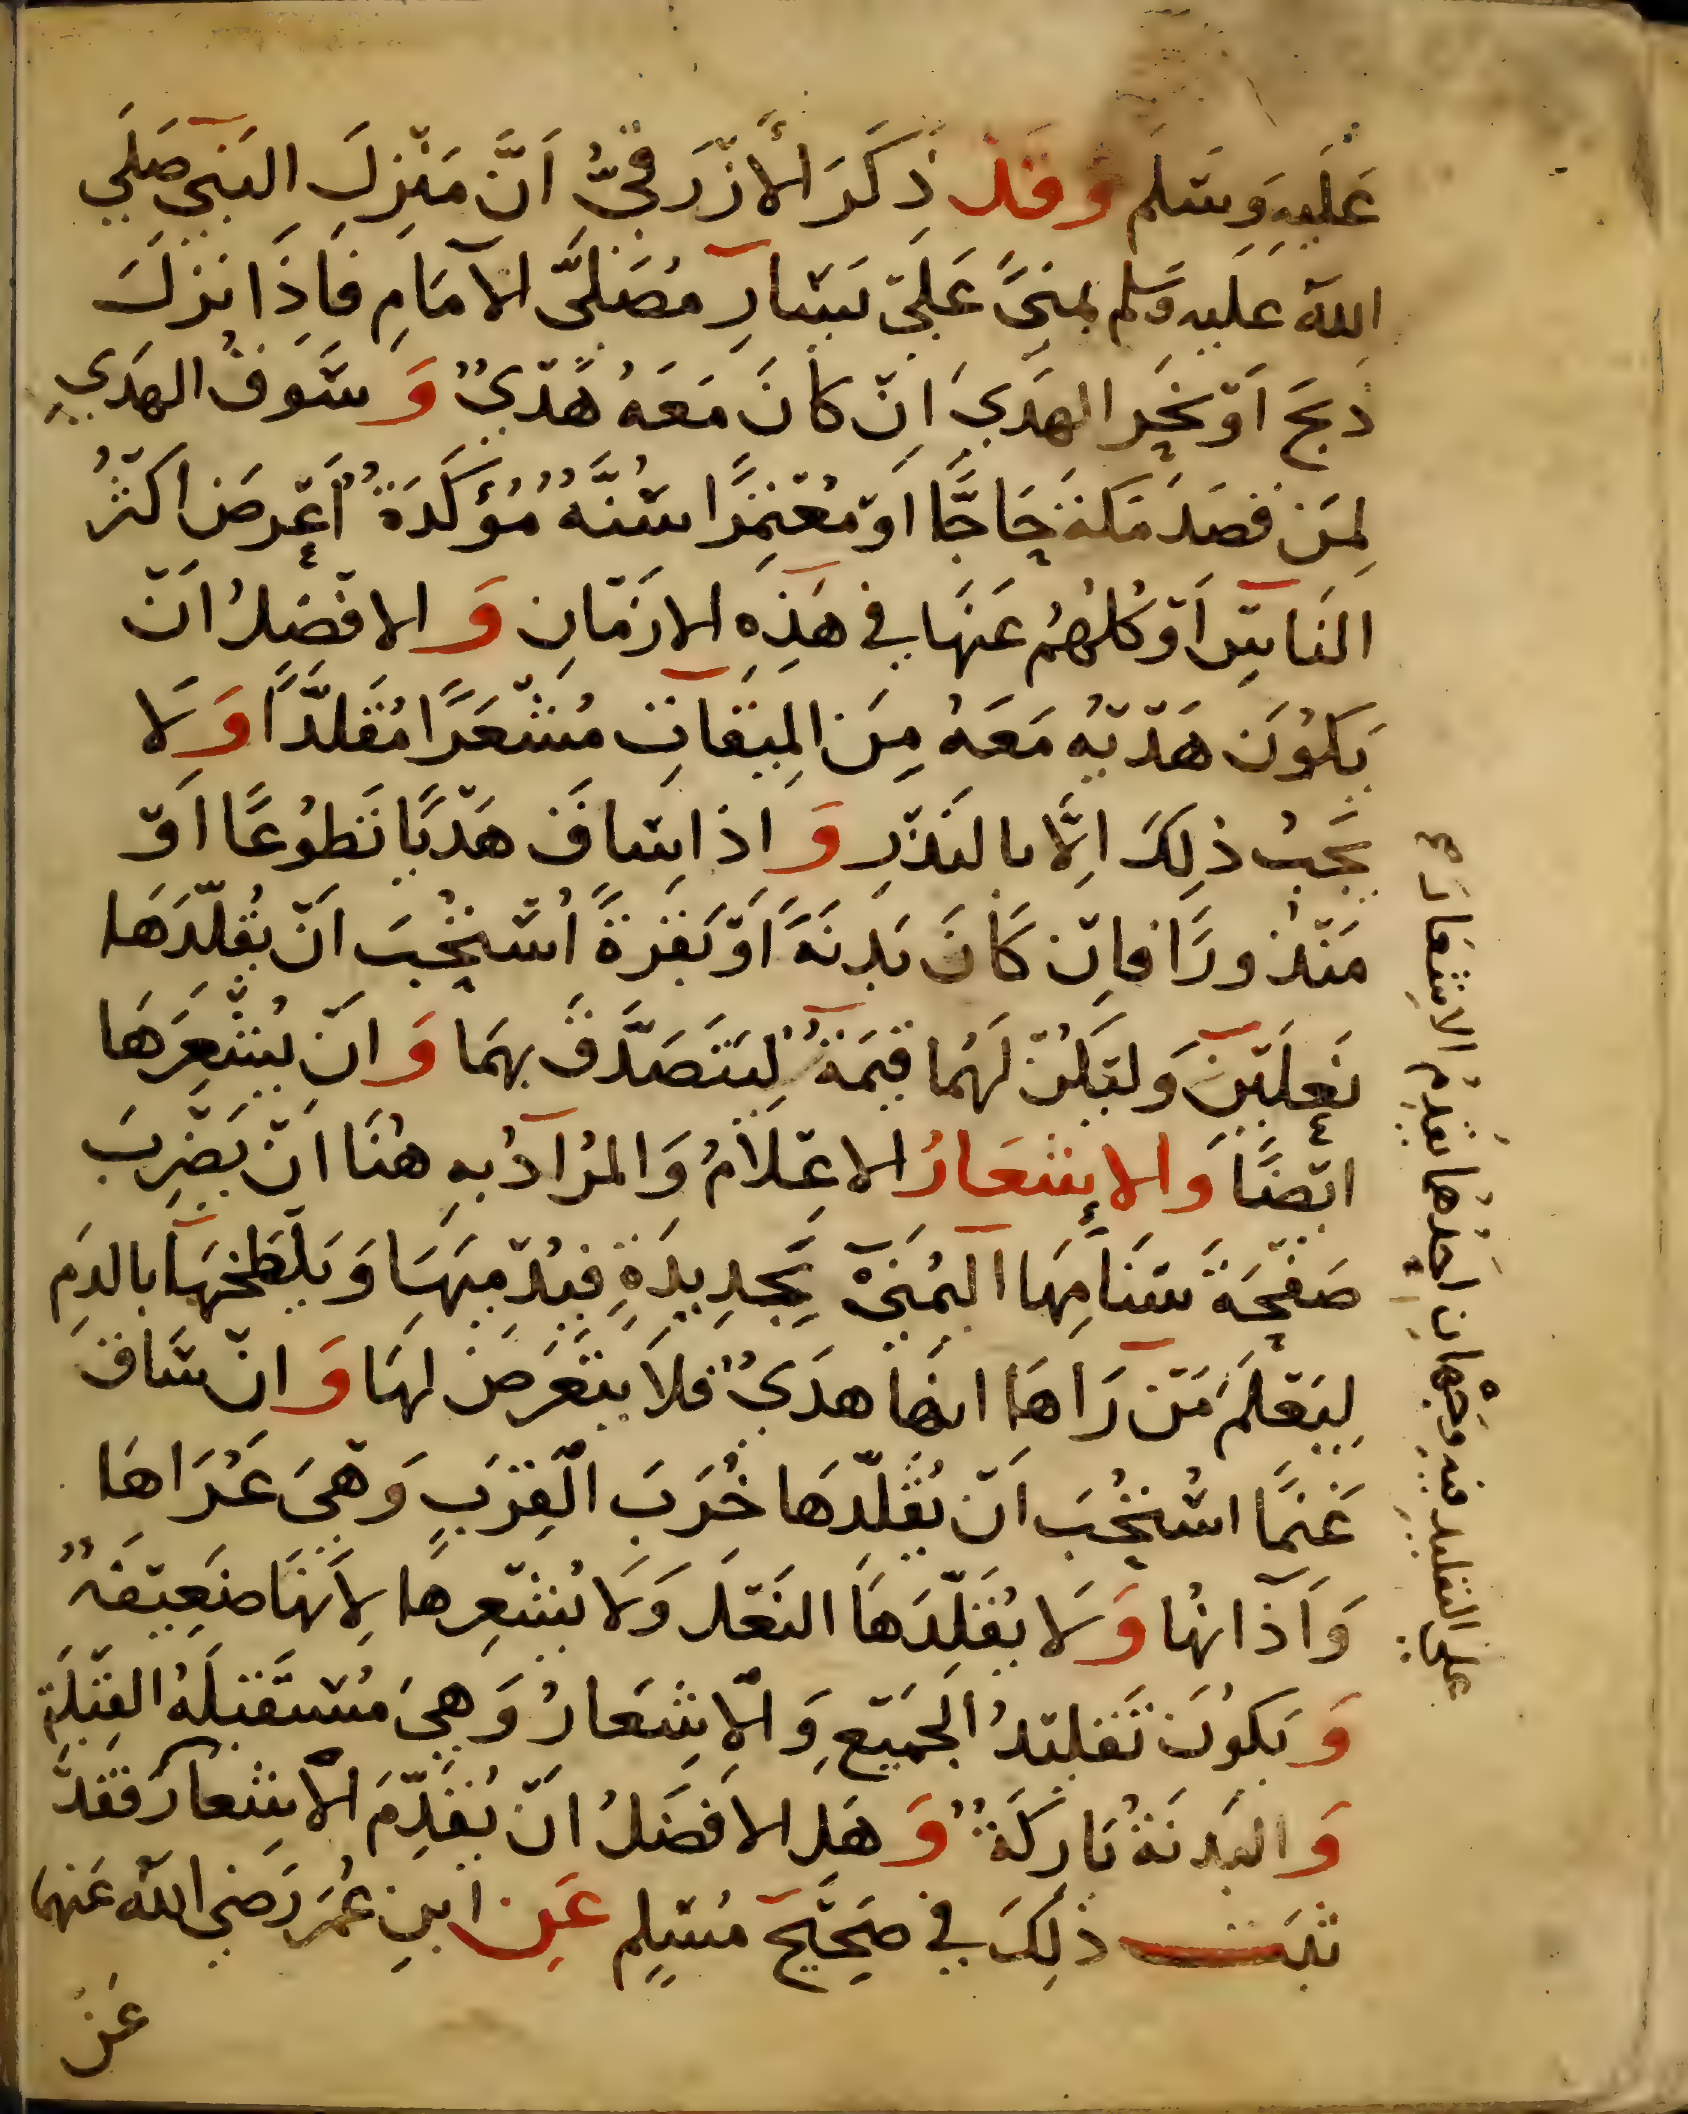 عَلَيهِ وَسَلم وَقَدْ ذَكَرَ الأَزْرَقيُّ اَنَّ مَنْزِلَ النَبي صَلي
الله عَليه وَسَلم بمنىً عَلَيْ يَسَارِ مُصَلَّى الامَامِ فَاذَا نَزلَ
ذبَحَ اَوْ نحَر الهَديَ اِنْ كانَ مَعَهُ هَدْيٌ وَ سَوقُ الهَدي
لمَن قصَدَ مَكةَ حَاجًّا اَوْ مُعْتمِرًا سُنَّةٌ مُؤَكَدَةٌ اَعْرضَ اكْثرُ
النَاسِ اَوْ كُلهُم عَنهَا في هَذِهِ الازمَانِ وَ الافْضَلُ اَنْ
يَكوُنَ هَدْيُه مَعَهُ مِنَ المِيقاتِ مُشْعَرًا مُقَلدًا وَ لَا
يَجبُ ذلِكَ اِلَّا بالنَذْرِ وَ اذا سَاقَ هَدْيًا تَطوُعًا اَوْ
مَنْذورًا فاِنْ كَانَ بَدنَةً اَوْ بَقرَةً اُسْتحُبَ اَنْ يُقَلّدَهَا
نَعلَيْنِ وَلْيَكُنْ لَهُما قِيمَةٌ لِيَتَصَدَّقَ بهِمَا وَ انْ يُشْعِرَهَا
ايْضًا وَ الإِشعَارُ الاعْلَامُ وَالمُرَادُ بهِ هُنَا انْ يَضْرِبَ
صَفْحَةَ سَنَامِهَا اليُمنَى بحَدِيدَةٍ فيُدْميَهَا وَيُلَطخهَا بالدَم
لِيَعْلَمَ مَنْ رَاهَا انهَا هَديٌ فَلا يتَعَرَضَ لهَا وَ انْ سَاقَ
غَنمًا اسْتحُبَ اَنْ يُقَلّدَهَا خُرَبَ القِرَبِ وَهيَ عُرَاهَا
وَآذَانهُا وَ لَا يُقَلّدَهَا النَعْلَ وَلَا يُشْعِرهَا لِأَنهَا ضَعِيفَةٌ
وَ يَكوُنَ تَقليْدُ الجَميْعِ وَالإشعَارُ وَهيَ مُسْتَقبلَةُ القِبْلَةِ
وَ البَدنَةُ بَارِكَةٌ وَ هَل الافضَلُ اَنْ يُقَدِّمَ الإشعَارَ فقَدْ
ثبَت ذلِكَ في صَحِيْحِ مُسْلِم عَن ابنِ عُمَرَ رَضي الله عَنهما
عَنْ
الاشعَار ع
فيه وَجْهانِ اَحَدُهُما يُقَدِمُ الاشعَار
علي التقليد